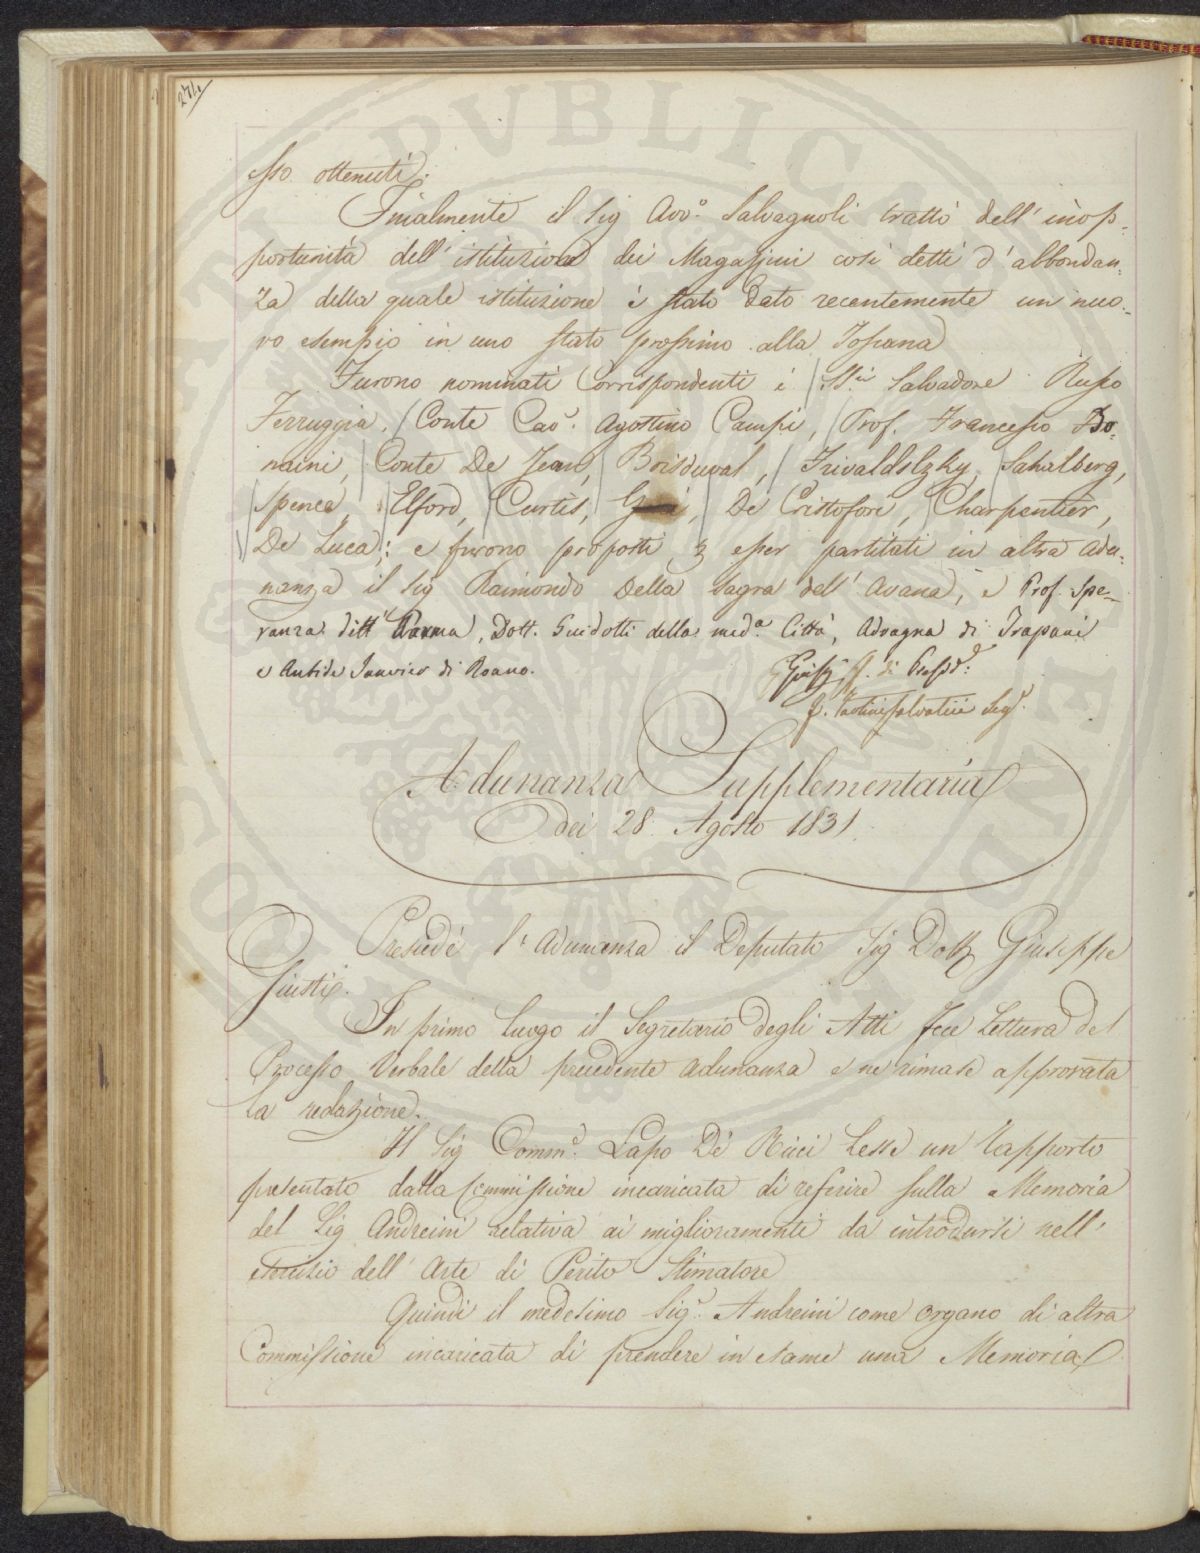 274
esso ottenuti.
Finalmente il Sig Avv.º Salvagnoli trattò dell' inop-
portunità dell' istituzione dei Magazzini così detti d' abbondan-
za della quale istituzione è stato dato recentemente un nuo-
vo esempio in uno stato prossimo alla Toscana
Furono nominati Corrispondenti i SS.ri Salvadore Russo
Ferruggia, Conte Cav.e Agostino Campi, Prof. Francesco Bo-
naini, Conte De Jean, Boisduval, Frivaldslzky, Sahalberg,
Spence, Elford, Curtis, De Cristofori, Charpentier,
De Luca; e furono proposti esser partitati in altra adu-
nanza il Sig Raimondo Della Sagra dell' Avana, e Prof. Spe-
ranza di Parma, Dott. Guidotti della med.a Città, Adragna di Trapani
e Antide Janvier di Roano.
Segr.
Adunanza Supplementaria
dei 28 Agosto 1831.
Presiedè l' adunanza il Deputato Sig Dott Giuseppe
Giusti.
In primo luogo il Segretario degli Atti fece Lettura del
Processo Verbale della precedente adunanza e ne rimase approvata
la redazione.
Il Sig Comm.e Lapo De Ricci Lesse un rapporto
presentato dalla Commissione incaricata di referire sulla Memoria
del Sig Andreini relativa ai miglioramenti da introdursi nell'
esercizio dell' Arte di Perito Stimatore
Quindi il medesimo Sig.r Andreini come organo di altra
Commissione incaricata di prendere in esame una Memoria
BIBLIOTHECA PUBLICA